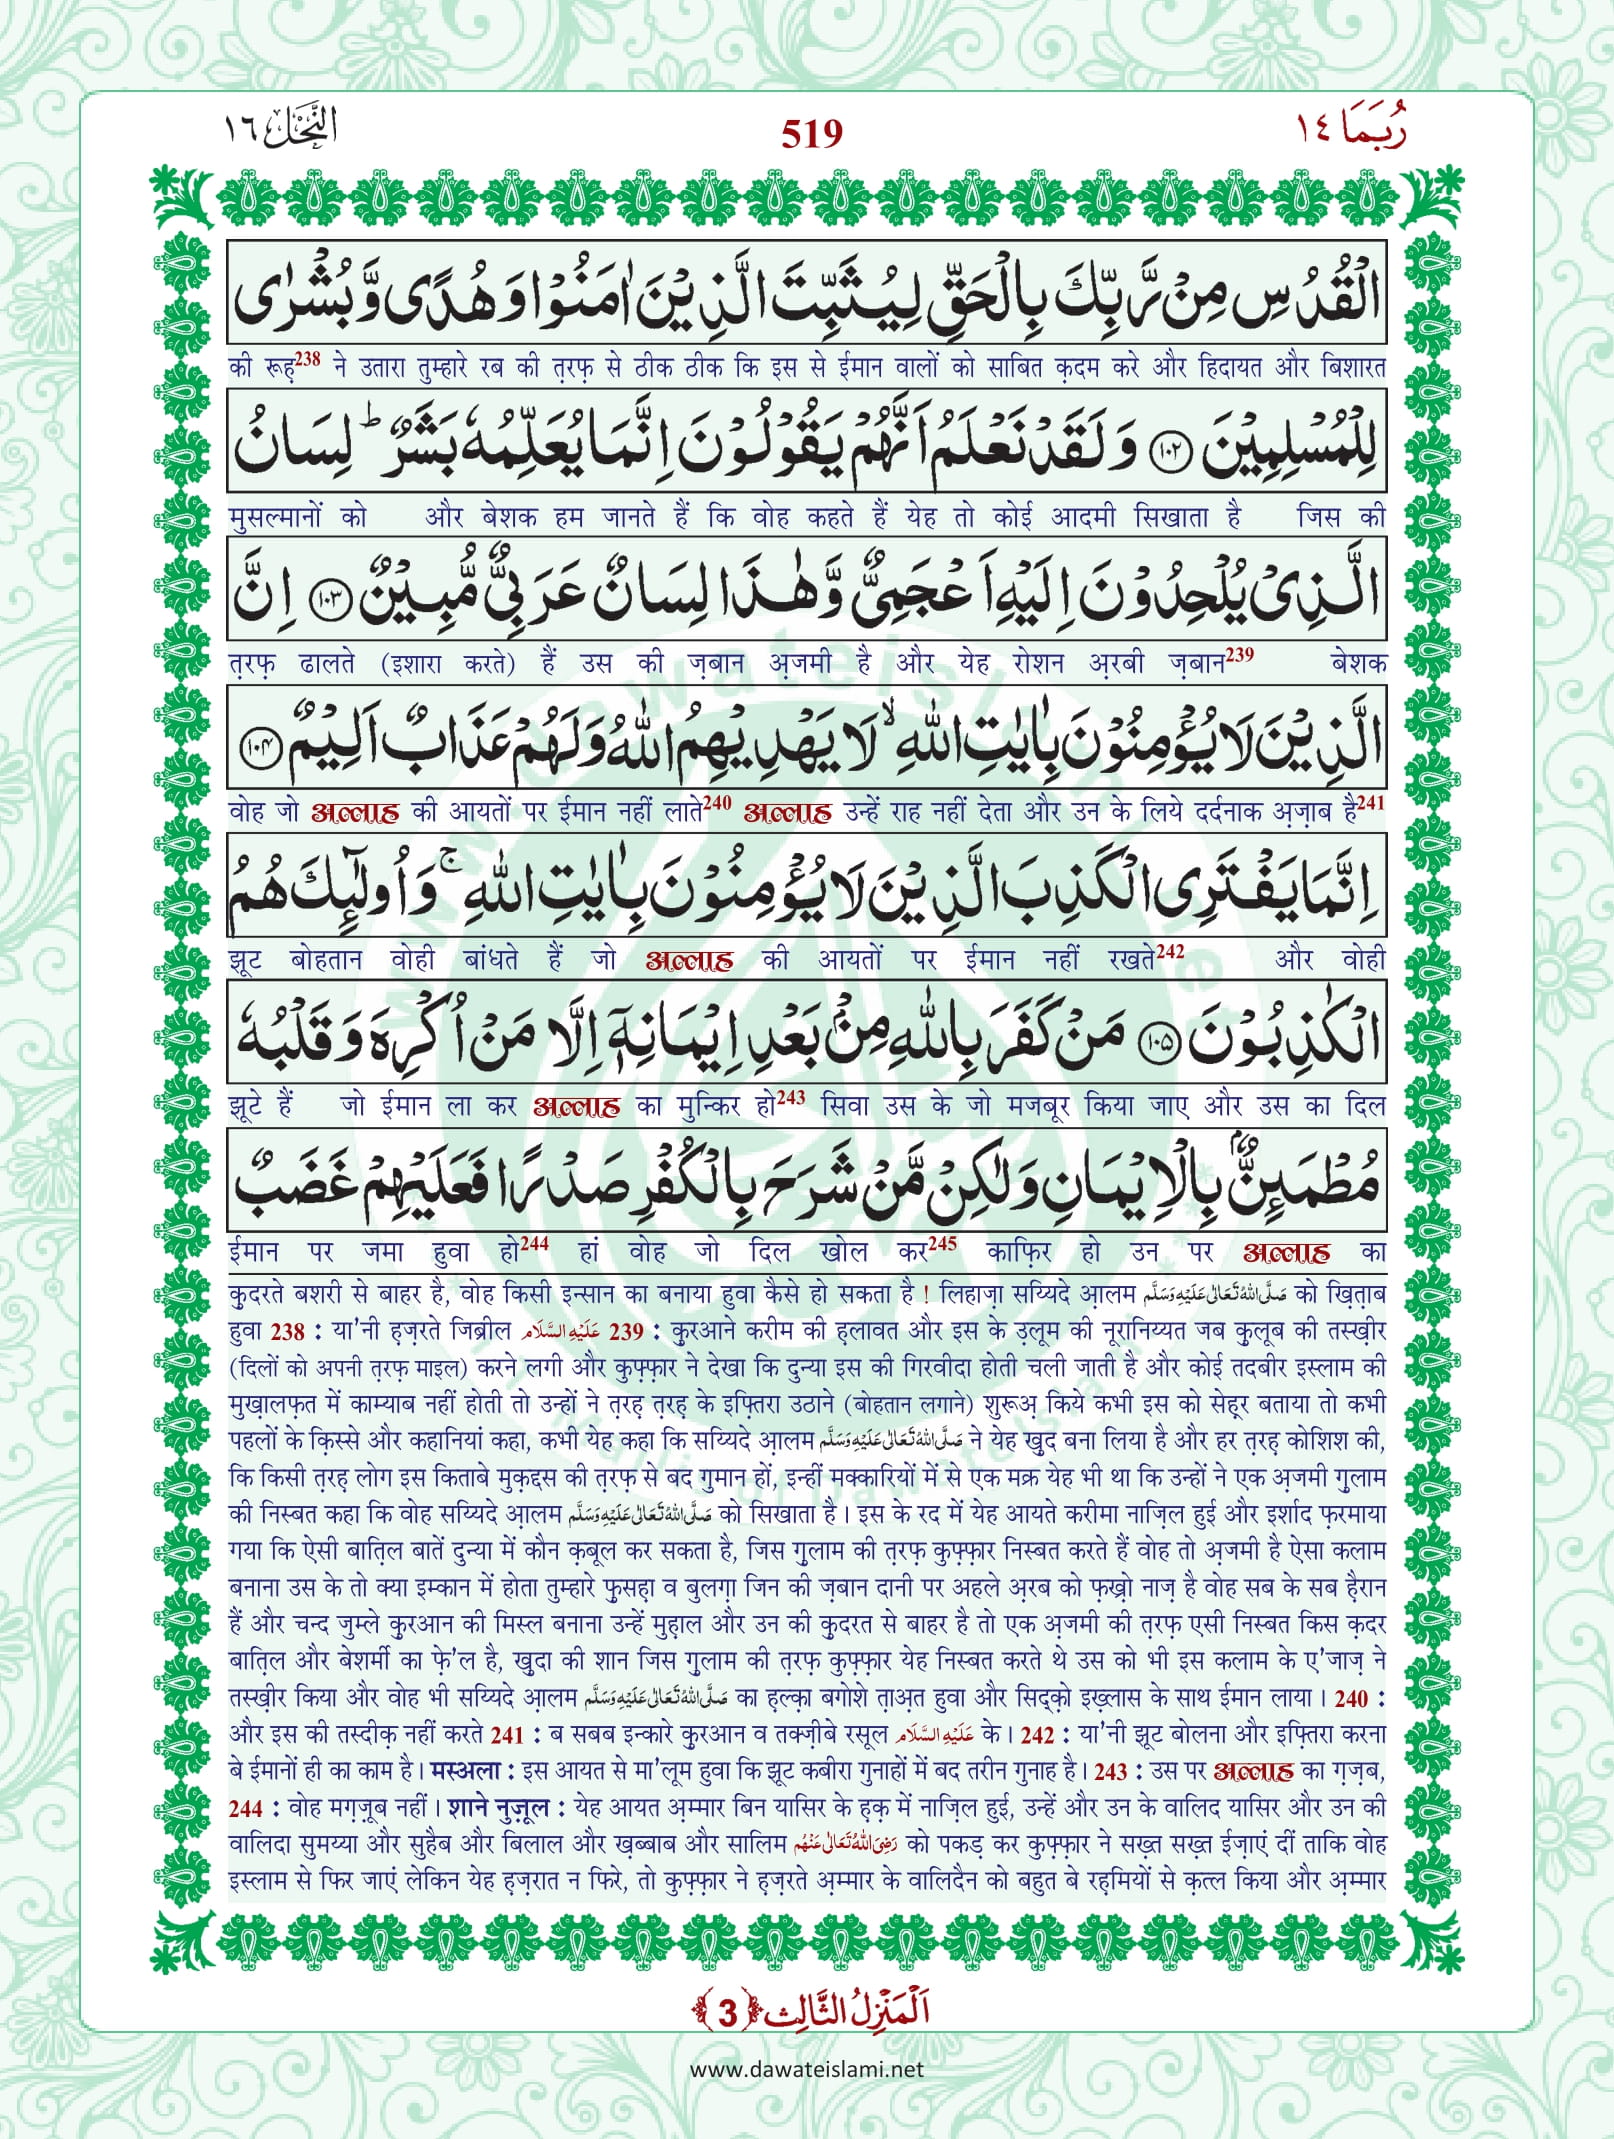 النَّحْل ١٦
519
رُبَمَا ١٤
الْقُدُسِ مِنْ رَّبِّكَ بِالْحَقِّ لِيُثَبِّتَ الَّذِيْنَ اٰمَنُوْا وَهُدًى وَّبُشْرٰى
की रूह़238 ने उतारा तुम्हारे रब की त़रफ़ से ठीक ठीक कि इस से ईमान वालों को साबित क़दम करे और हिदायत और बिशारत
لِلْمُسْلِمِيْنَ ﴿۱۰۲﴾ وَلَقَدْ نَعْلَمُ اَنَّهُمْ يَقُوْلُوْنَ اِنَّمَا يُعَلِّمُهٗ بَشَرٌ ؕ لِسَانُ
मुसल्मानों को और बेशक हम जानते हैं कि वोह कहते हैं येह तो कोई आदमी सिखाता है जिस की
الَّذِيْ يُلْحِدُوْنَ اِلَيْهِ اَعْجَمِيٌّ وَّهٰذَا لِسَانٌ عَرَبِيٌّ مُّبِيْنٌ ﴿۱۰۳﴾ اِنَّ
त़रफ़ ढालते (इशारा करते) हैं उस की ज़बान अ़जमी है और येह रोशन अ़रबी ज़बान239 बेशक
الَّذِيْنَ لَا يُؤْمِنُوْنَ بِاٰيٰتِ اللّٰهِ ۙ لَا يَهْدِيْهِمُ اللّٰهُ وَلَهُمْ عَذَابٌ اَلِيْمٌ ﴿۱۰۴﴾
वोह जो अल्लाह की आयतों पर ईमान नहीं लाते240 अल्लाह उन्हें राह नहीं देता और उन के लिये दर्दनाक अ़ज़ाब है241
اِنَّمَا يَفْتَرِى الْكَذِبَ الَّذِيْنَ لَا يُؤْمِنُوْنَ بِاٰيٰتِ اللّٰهِ ۚ وَاُولٰٓئِكَ هُمُ
झूट बोहतान वोही बांधते हैं जो अल्लाह की आयतों पर ईमान नहीं रखते242 और वोही
الْكٰذِبُوْنَ ﴿۱۰۵﴾ مَنْ كَفَرَ بِاللّٰهِ مِنْۢ بَعْدِ اِيْمَانِهٖۤ اِلَّا مَنْ اُكْرِهَ وَقَلْبُهٗ
झूटे हैं जो ईमान ला कर अल्लाह का मुन्किर हो243 सिवा उस के जो मजबूर किया जाए और उस का दिल
مُطْمَئِنٌّۢ بِالْاِيْمَانِ وَلٰكِنْ مَّنْ شَرَحَ بِالْكُفْرِ صَدْرًا فَعَلَيْهِمْ غَضَبٌ
ईमान पर जमा हुवा हो244 हां वोह जो दिल खोल कर245 काफ़िर हो उन पर अल्लाह का
क़ुदरते बशरी से बाहर है, वोह किसी इन्सान का बनाया हुवा कैसे हो सकता है ! लिहाज़ा सय्यिदे आ़लम صَلَّى اللّٰهُ تَعَالٰى عَلَيْهِ وَسَلَّم को ख़ित़ाब
हुवा 238 : या'नी ह़ज़रते जिब्रील عَلَيْهِ السَّلَام 239 : क़ुरआने करीम की ह़लावत और इस के उ़लूम की नूरानिय्यत जब क़ुलूब की तस्ख़ीर
(दिलों को अपनी त़रफ़ माइल) करने लगी और कुफ़्फ़ार ने देखा कि दुन्या इस की गिरवीदा होती चली जाती है और कोई तदबीर इस्लाम की
मुख़ालफ़त में काम्याब नहीं होती तो उन्हों ने त़रह़ त़रह़ के इफ़्तिरा उठाने (बोहतान लगाने) शुरूअ़ किये कभी इस को सेह़र बताया तो कभी
पहलों के क़िस्से और कहानियां कहा, कभी येह कहा कि सय्यिदे आ़लम صَلَّى اللّٰهُ تَعَالٰى عَلَيْهِ وَسَلَّم ने येह ख़ुद बना लिया है और हर त़रह़ कोशिश की,
कि किसी त़रह़ लोग इस किताबे मुक़द्दस की त़रफ़ से बद गुमान हों, इन्हीं मक्कारियों में से एक मक्र येह भी था कि उन्हों ने एक अ़जमी ग़ुलाम
की निस्बत कहा कि वोह सय्यिदे आ़लम صَلَّى اللّٰهُ تَعَالٰى عَلَيْهِ وَسَلَّم को सिखाता है। इस के रद में येह आयते करीमा नाज़िल हुई और इर्शाद फ़रमाया
गया कि ऐसी बात़िल बातें दुन्या में कौन क़बूल कर सकता है, जिस ग़ुलाम की त़रफ़ कुफ़्फ़ार निस्बत करते हैं वोह तो अ़जमी है ऐसा कलाम
बनाना उस के तो क्या इम्कान में होता तुम्हारे फ़ुसह़ा व बुलग़ा जिन की ज़बान दानी पर अहले अ़रब को फ़ख़्रो नाज़ है वोह सब के सब ह़ैरान
हैं और चन्द जुम्ले क़ुरआन की मिस्ल बनाना उन्हें मुह़ाल और उन की क़ुदरत से बाहर है तो एक अ़जमी की त़रफ़ एसी निस्बत किस क़दर
बात़िल और बेशर्मी का फ़े'ल है, ख़ुदा की शान जिस ग़ुलाम की त़रफ़ कुफ़्फ़ार येह निस्बत करते थे उस को भी इस कलाम के ए'जाज़ ने
तस्ख़ीर किया और वोह भी सय्यिदे आ़लम صَلَّى اللّٰهُ تَعَالٰى عَلَيْهِ وَسَلَّم का ह़ल्क़ा बगोशे त़ाअ़त हुवा और सिद्क़ो इख़्लास के साथ ईमान लाया। 240 :
और इस की तस्दीक़ नहीं करते 241 : ब सबब इन्कारे क़ुरआन व तक्ज़ीबे रसूल عَلَيْهِ السَّلَام के। 242 : या'नी झूट बोलना और इफ़्तिरा करना
बे ईमानों ही का काम है। मस्अला : इस आयत से मा'लूम हुवा कि झूट कबीरा गुनाहों में बद तरीन गुनाह है। 243 : उस पर अल्लाह का ग़ज़ब,
244 : वोह मग़ज़ूब नहीं। शाने नुज़ूल : येह आयत अ़म्मार बिन यासिर के ह़क़ में नाज़िल हुई, उन्हें और उन के वालिद यासिर और उन की
वालिदा सुमय्या और सुहैब और बिलाल और ख़ब्बाब और सालिम رَضِىَ اللّٰهُ تَعَالٰى عَنْهُم को पकड़ कर कुफ़्फ़ार ने सख़्त सख़्त ईज़ाएं दीं ताकि वोह
इस्लाम से फिर जाएं लेकिन येह ह़ज़रात न फिरे, तो कुफ़्फ़ार ने ह़ज़रते अ़म्मार के वालिदैन को बहुत बे रह़मियों से क़त्ल किया और अ़म्मार
اَلْمَنْزِلُ الثَّالِث ﴿3﴾
www.dawateislami.net